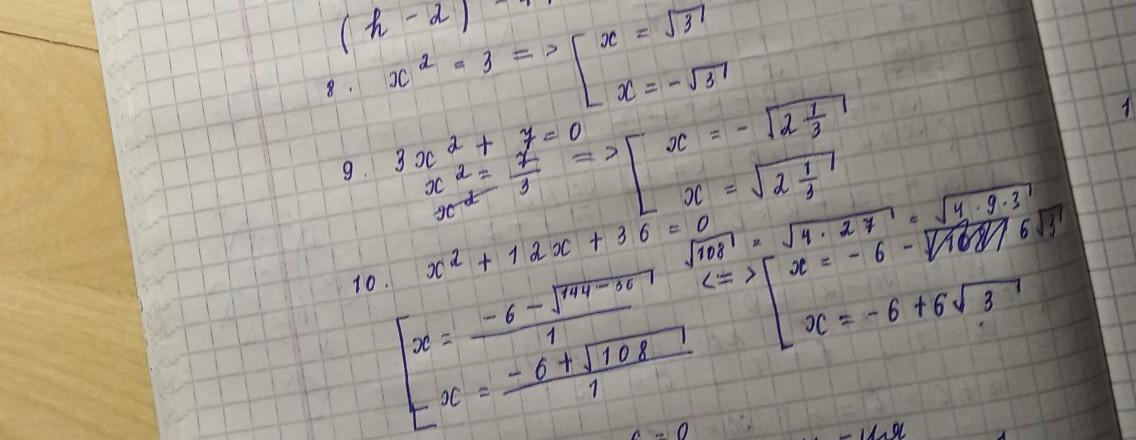 (h - 2)
8. x² = 3 => [ x = √3
x = -√3
9. 3x² + 7 = 0
x² = 7/3 => [ x = - √(2 1/3)
x² x = √(2 1/3)
10. x² + 12x + 36 = 0
√108 = √(4 · 27) = √(4 · 9 · 3)
[ x = (-6 - √(144 - 36))/1 <=> [ x = -6 - √108 6√3
x = (-6 + √108)/1 x = -6 + 6√3
= 0